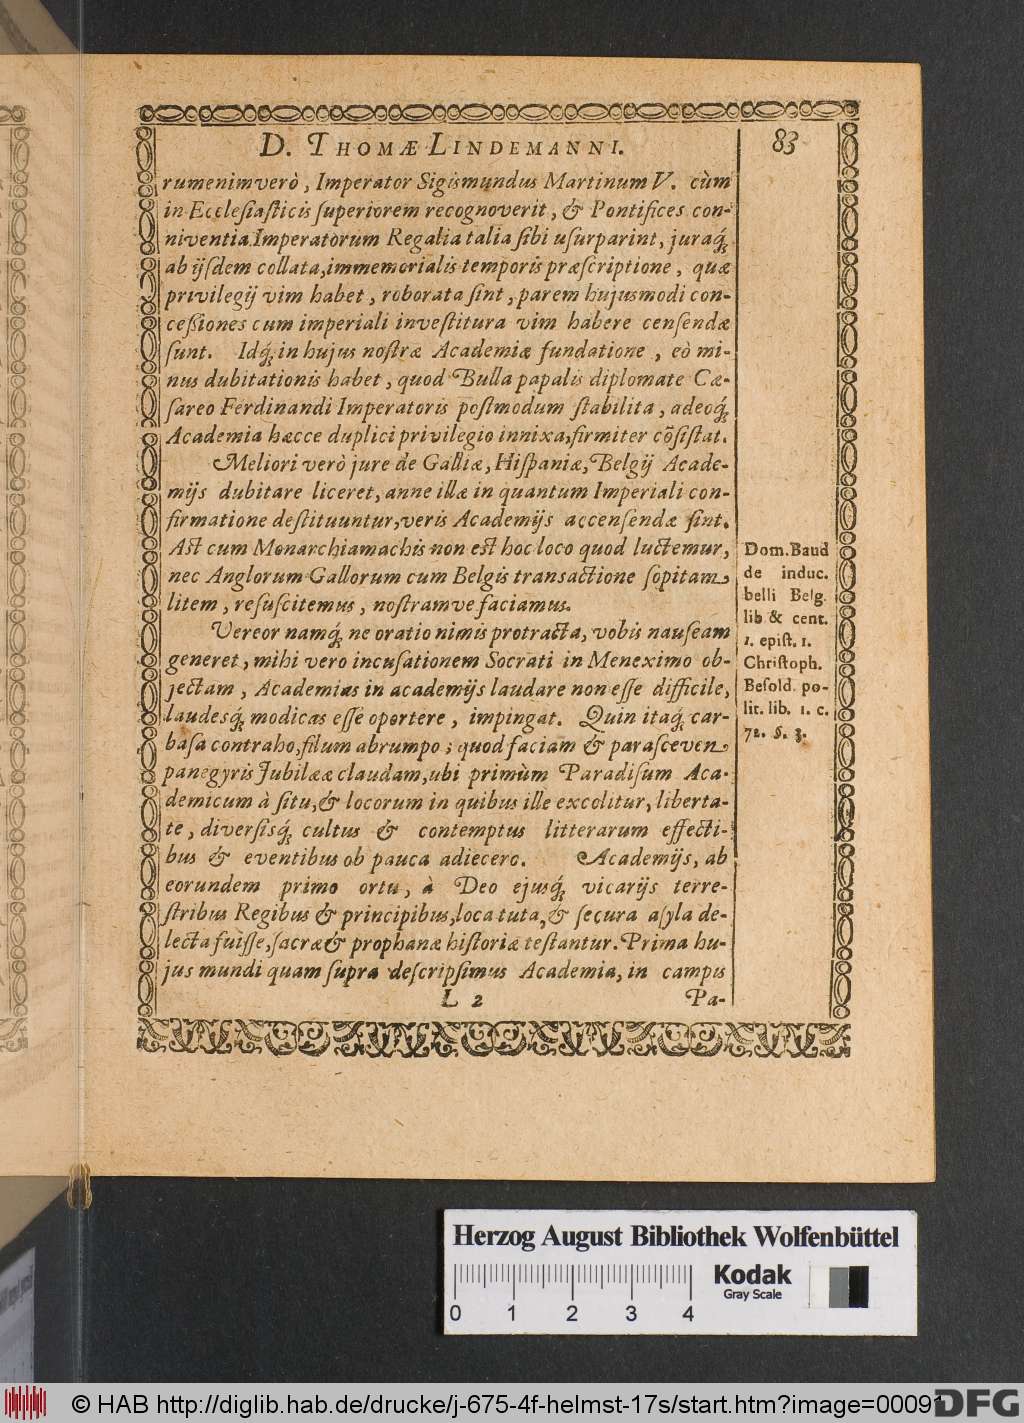 D. THOMÆ LINDEMANNI. 83
rumenimverò, Imperator Sigiſmundus Martinum V. cùm
in Eccleſiaſticis ſuperiorem recognoverit, & Pontifices con-
niventia Imperatorum Regalia talia ſibi uſurparint, juraq́;
ab ijſdem collata, immemorialis temporis præſcriptione, quæ
privilegij vim habet, roborata ſint, parem hujusmodi con-
ceßiones cum imperiali inveſtitura vim habere cenſendæ
ſunt. Idq́; in hujus noſtræ Academiæ fundatione, eò mi-
nus dubitationis habet, quod Bulla papalis diplomate Cæ-
ſareo Ferdinandi Imperatoris poſtmodum ſtabilita, adeoq́;
Academia hæcce duplici privilegio innixa, firmiter cõſiſtat.
Meliori verò jure de Galliæ, Hiſpaniæ, Belgij Acade-
mijs dubitare liceret, anne illæ in quantum Imperiali con-
firmatione deſtituuntur, veris Academijs accenſendæ ſint.
Aſt cum Monarchiamachis non eſt hoc loco quod luctemur,
nec Anglorum Gallorum cum Belgis transactione ſopitam
litem, reſuſcitemus, noſtramve faciamus.
Vereor namq́; ne oratio nimis protracta, vobis nauſeam
generet, mihi vero incuſationem Socrati in Meneximo ob-
jectam, Academias in academijs laudare non eſſe difficile,
laudesq́; modicas eſſe oportere, impingat. Quin itaq́; car-
baſa contraho, filum abrumpo; quod faciam & paraſceven
panegyris Jubilææ claudam, ubi primùm Paradiſum Aca-
demicum à ſitu, & locorum in quibus ille excolitur, liberta-
te, diverſisq́; cultus & contemptus litterarum effecti-
bus & eventibus ob pauca adiecero. Academijs, ab
eorundem primo ortu, à Deo ejusq́; vicarijs terre-
ſtribus Regibus & principibus, loca tuta, & ſecura aſyla de-
lecta fuiſſe, ſacræ & prophanæ hiſtoriæ teſtantur. Prima hu-
jus mundi quam ſupra deſcripſimus Academia, in campis
L 2 Pa-
Dom. Baud
de induc.
belli Belg.
lib & cent.
1. epiſt. 1.
Chriſtoph.
Beſold. po-
lit. lib. 1. c.
72. §. 3.
Herzog August Bibliothek Wolfenbüttel
Kodak
Gray Scale
0 1 2 3 4
© HAB http://diglib.hab.de/drucke/j-675-4f-helmst-17s/start.htm?image=00091
DFG